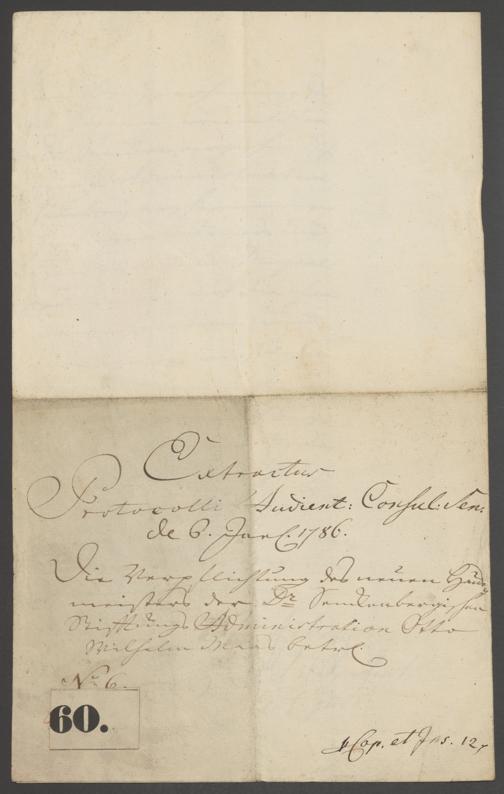 Extractus
Protocolli Audient: Consul: Sen:
de 6. Jan. 1786.
Die Verpflichtung des neuen Haus
meisters der Dr Senckenbergischen
Stifftungs Administration Otto
Wilhelm Maas betrl.
No 6.
60.
Cop. et Ins. 12